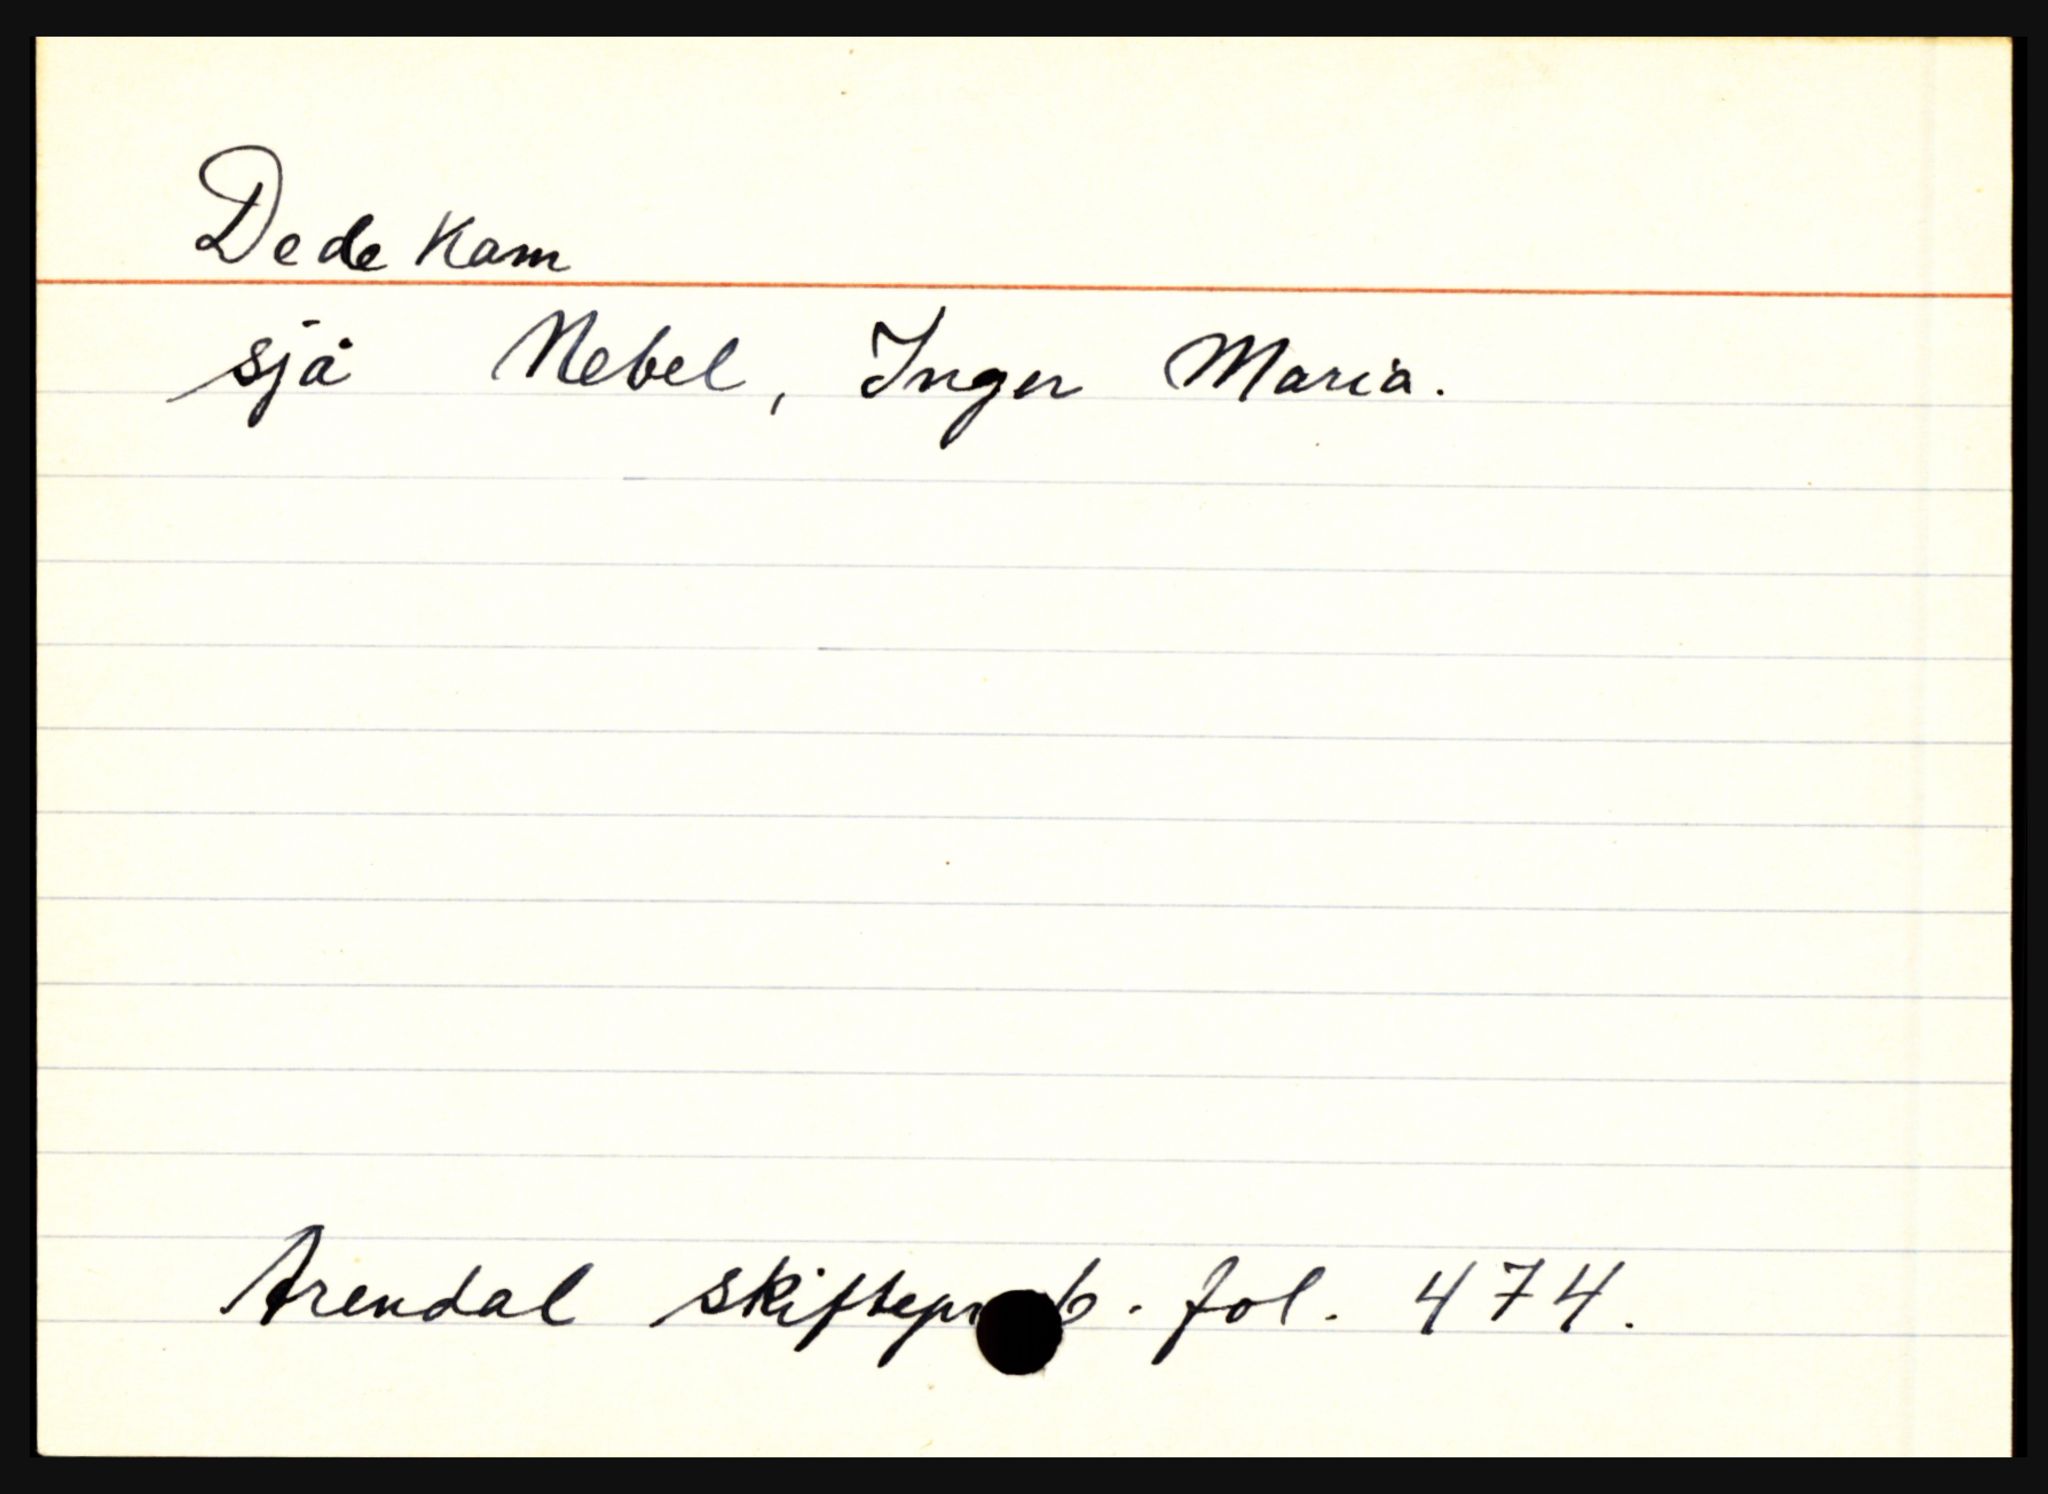 Dedekam
sjå Nebel, Inger Maria.
Arendal 6. fol. 474.